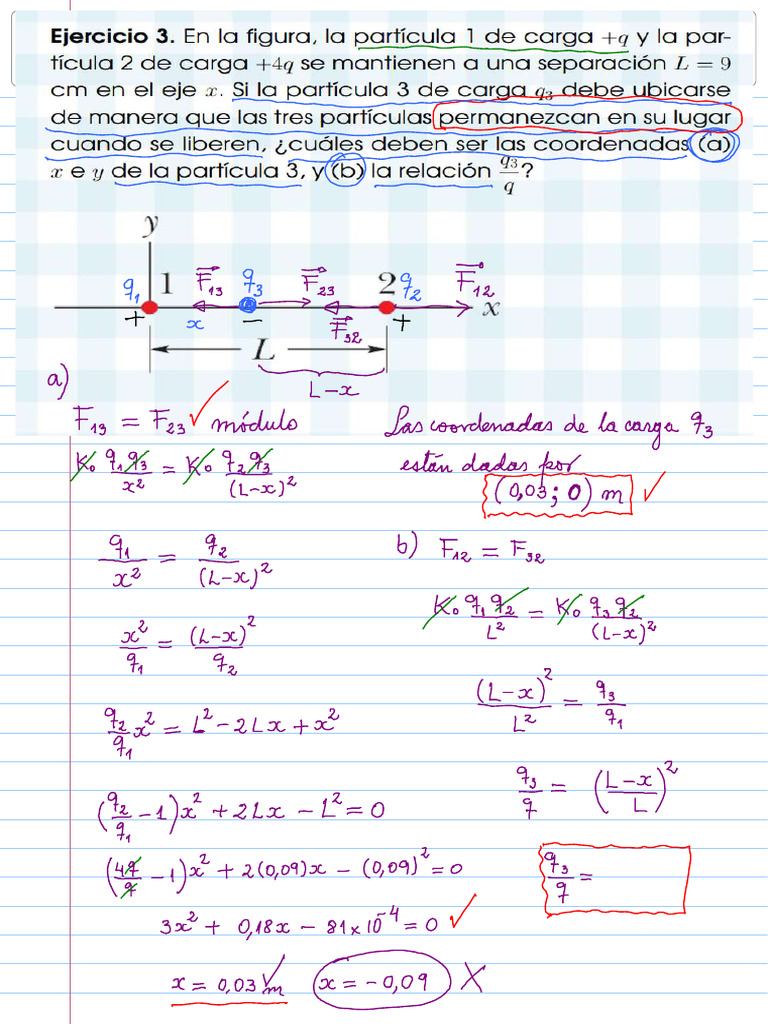 Ejercicio 3. En la figura, la partícula 1 de carga +q y la par-
tícula 2 de carga +4q se mantienen a una separación L = 9
cm en el eje x. Si la partícula 3 de carga q₃ debe ubicarse
de manera que las tres partículas permanezcan en su lugar
cuando se liberen, ¿cuáles deben ser las coordenadas (a)
x e y de la partícula 3, y (b) la relación q₃/q?
y
q₁ 1 F₁₃ q₃ F₂₃ 2 q₂ F₁₂
x
+ x − F₃₂ +
L
L−x
a)
F₁₃ = F₂₃ ✓ módulo
K₀ q₁q₃/x² = K₀ q₂q₃/(L−x)²
q₁/x² = q₂/(L−x)²
x²/q₁ = (L−x)²/q₂
q₂/q₁ x² = L² − 2Lx + x²
(q₂/q₁ − 1)x² + 2Lx − L² = 0
(4q/q − 1)x² + 2(0,09)x − (0,09)² = 0
3x² + 0,18x − 81×10⁻⁴ = 0 ✓
x = 0,03 m ✓ x = −0,09 X
Las coordenadas de la carga q₃
están dadas por
(0,03; 0) m ✓
b) F₁₂ = F₃₂
K₀ q₁q₂/L² = K₀ q₃q₂/(L−x)²
(L−x)²/L² = q₃/q₁
q₃/q = (L−x/L)²
q₃/q =